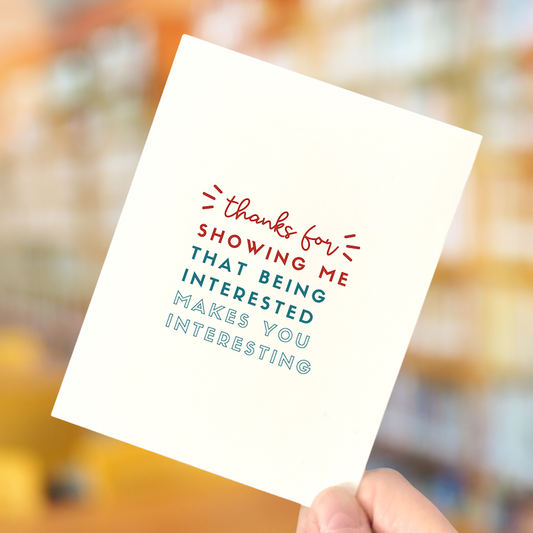 thanks for
SHOWING ME
THAT BEING
INTERESTED
MAKES YOU
INTERESTING